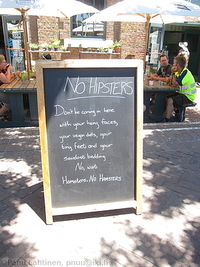 No HIPSTERS
Don't be coming in here
with your hairy faces,
your vegan diets, your
tiny feet and your
sawdust bedding
No, wait
Hamsters. No HAMSTERS
Panu Lahtinen, pnuu@iki.fi